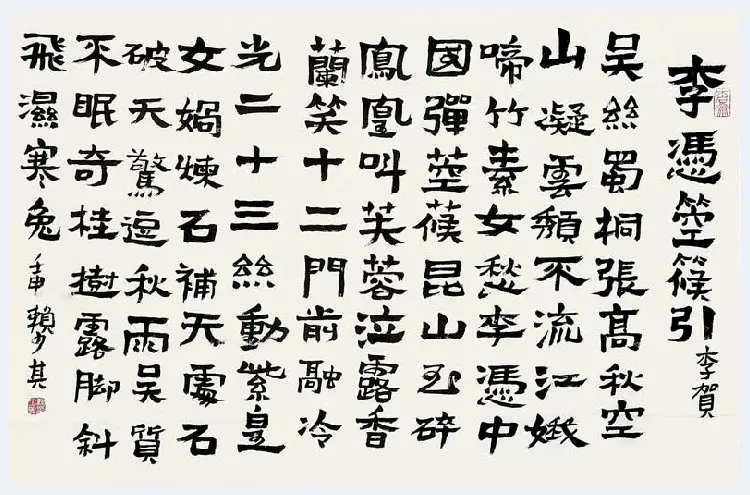 李憑箜篌引 李賀
吴絲蜀桐張高秋空
山凝雲頹不流江娥
啼竹素女愁李憑中
國彈箜篌昆山玉碎
鳳凰叫芙蓉泣露香
蘭笑十二門前融冷
光二十三絲動紫皇
女媧煉石補天處石
破天驚逗秋雨吴質
不眠奇桂樹露脚斜
飛濕寒兔 壬申賴少其